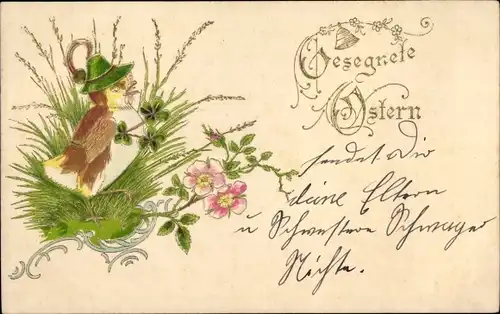 Gesegnete
Ostern
sendet Die
deine Eltern
u Schwestern Schwager
Nichte.